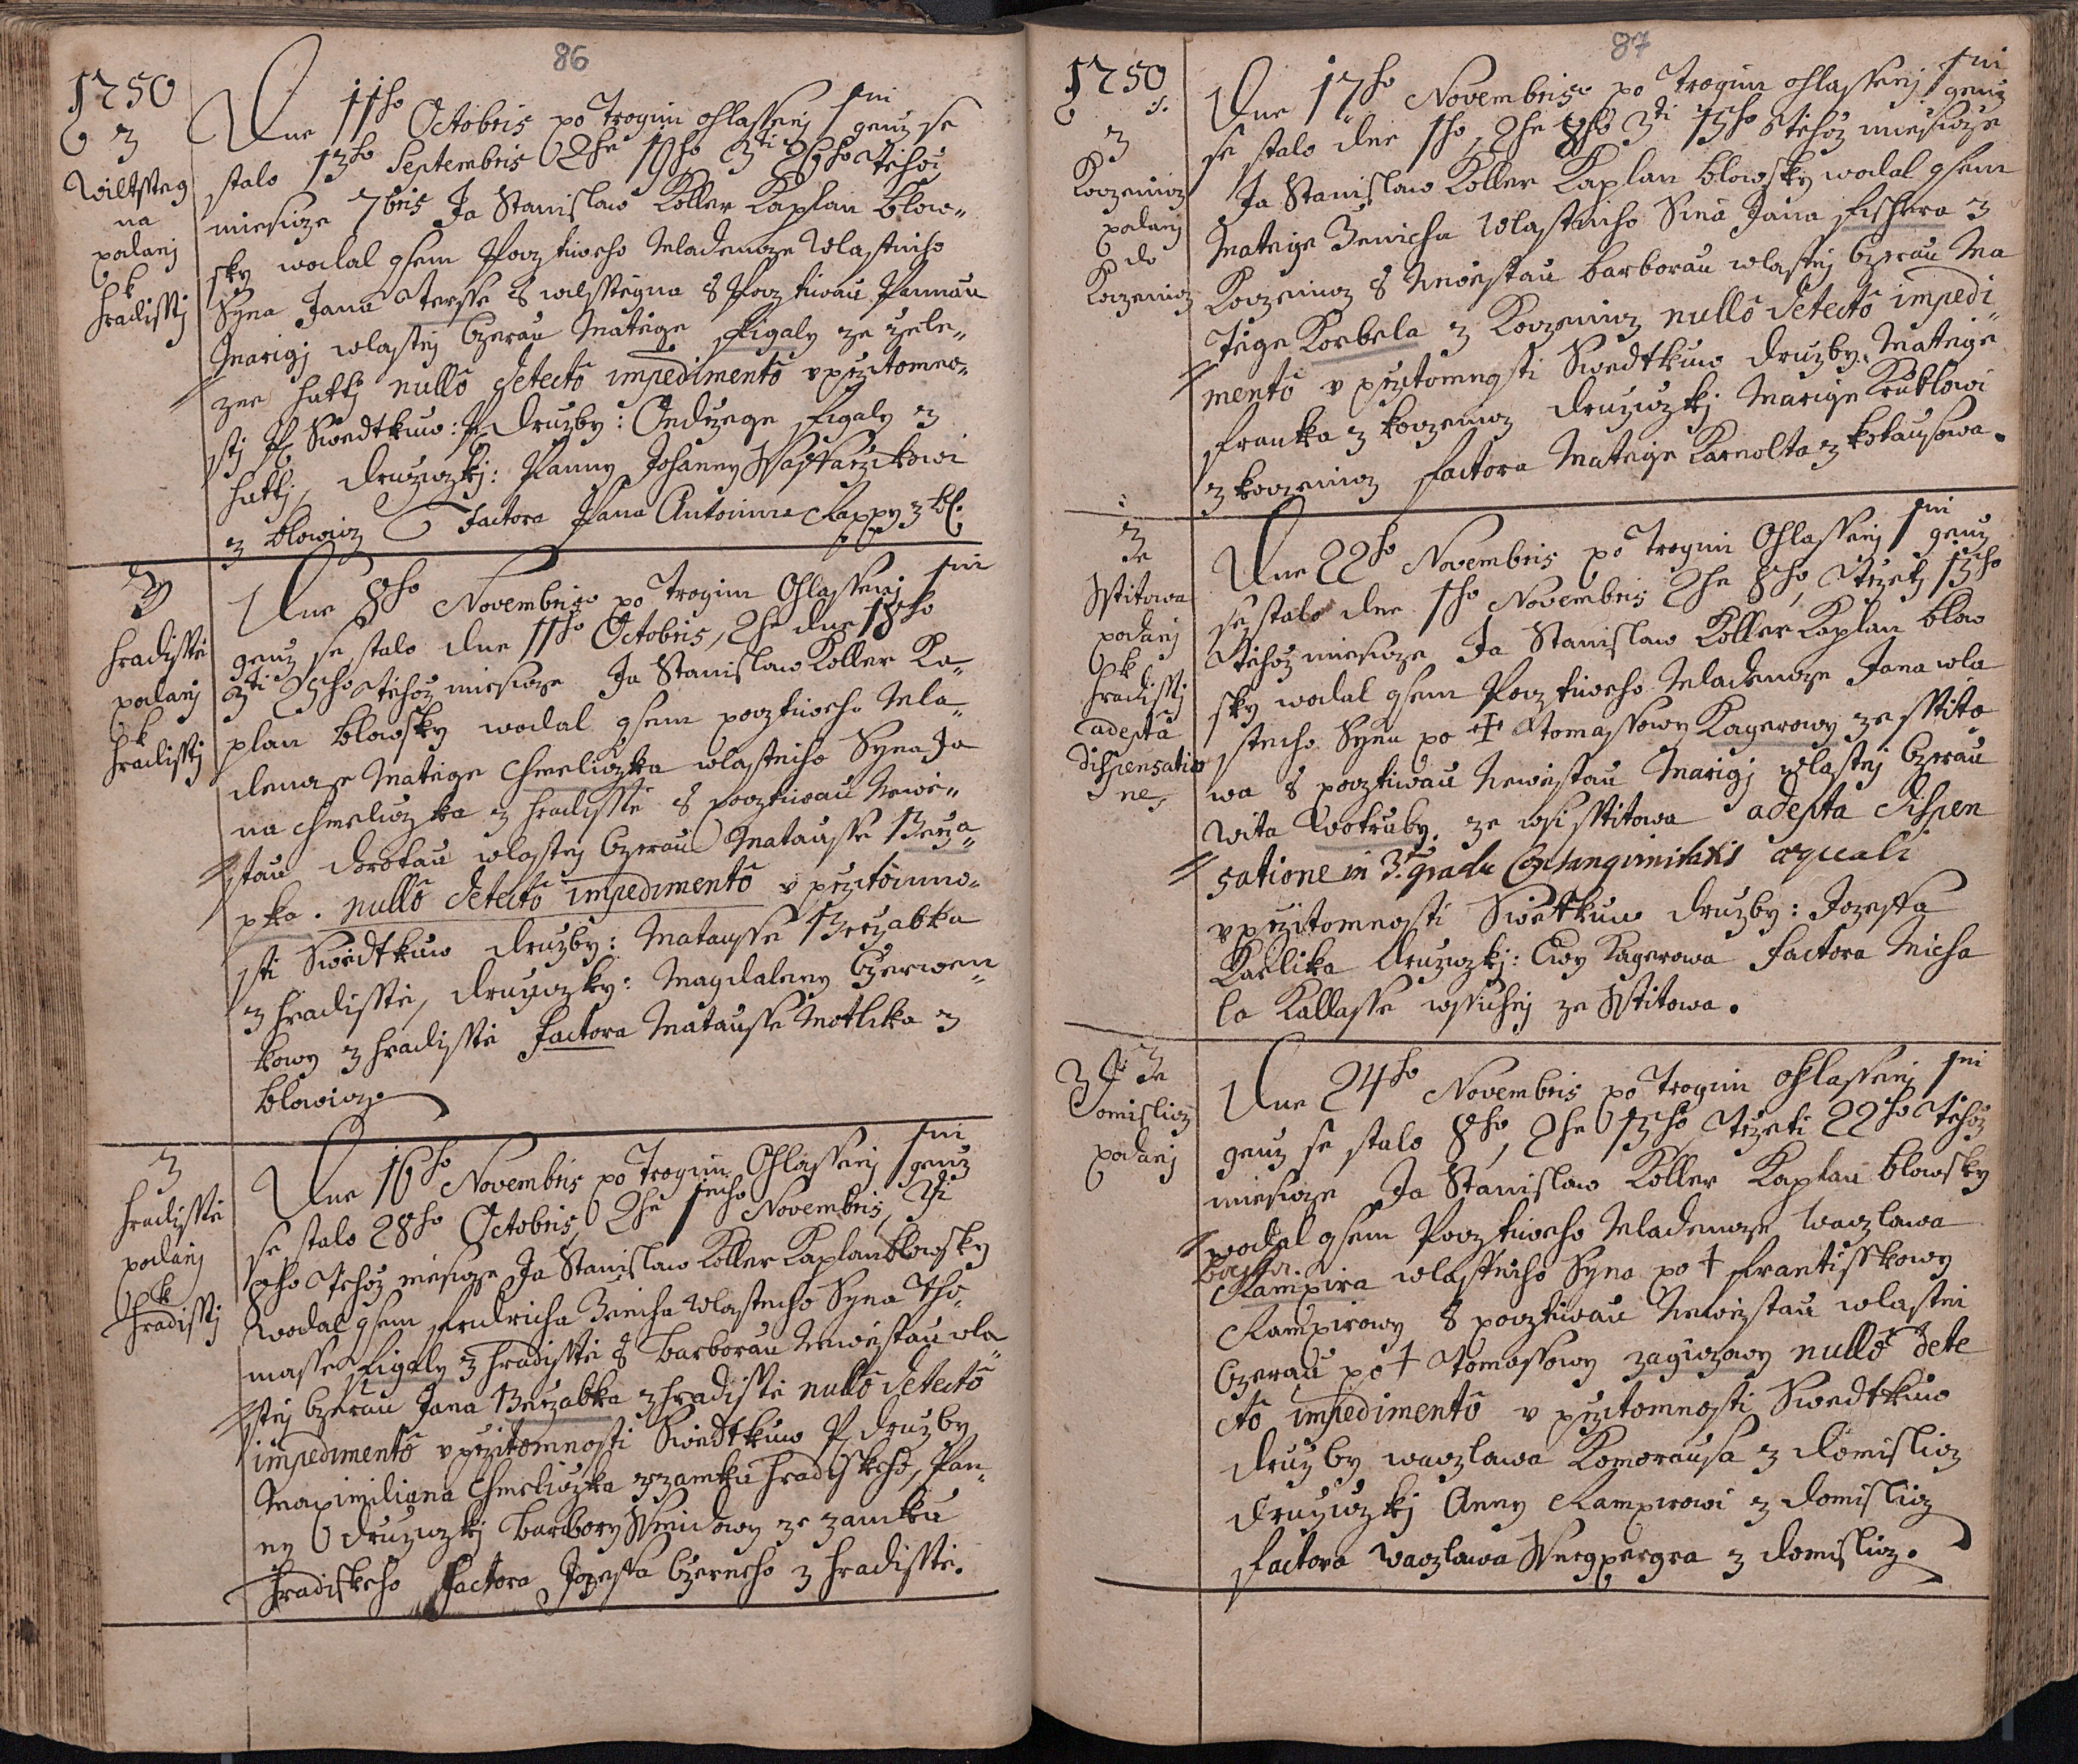 86
1750
z
Wiltsteg
na
podanj
k
Hradisstj
Dne 11ho Octobris po Trogim ohlassenj 1nj genz se
stalo 13ho Septembris 2he 19ho 3ti 26ho tehoz
miesicze 7bris Ja Stanislaw Koller Kaplan blow-
sky wodal gsem Pocztiweho Mladencze Wlastniho
Syna Jana Tersse s Pocztiwau Pannau
Marigj wlastnj Czerau Matiege Figaly ze Zele-
zne Huttj nullô detectô impedimentô v pržitomno-
stj Swedtkuw: P. Druzby: Ondrzege Figaly z
Huttj, Druziczkj: Panny Johanny
z Blowicz Factora Pana Antonina Rappy z Bl.
z
Hradisstie
podanj
k
Hradisstj
Dne 8ho Novembris po Trogim Ohlassenj 1nj
genz se stalo dne 11ho Octobris, 2he dne 18ho
3ti 25ho tehoz miesicze Ja Stanislaw Koller Ka-
plan blowsky wodal gsem pocztiweho Mla-
dencze Matiege Chmeliczka wlastniho Syna Ja
na Chmeliczka z Hradisstie s pocztiwau Newie-
stau Dorotau wlastnj Czerau Matausse Brza-
pka. nullô detectô impedimentô v pržitomno-
sti Swiedtkuw Druzby: Matausse Brzabka
z Hradisstie, Druziczky: Magdaleny Czerwen-
kowy z Hradisstie Factora Matausse Motlika z
Blowicz
z
Hradisstie
podanj
k
Hradisstj
Dne 16ho Novembris po Trogim Ohlassenj 1nj genz
se stalo 28ho Octobris, 2he 1ncho Novembris, 3ti
8ho tehoz miesicze Ja Stanislaw Koller Kaplan blowsky
wodal gsem Fridricha Zenicha Wlastniho Syna Tho-
masse Figaly z Hradisstie s Barborau Newiestau wla-
stnj Czerau Jana Brzabka z Hradisstie nullô detectô
impedimentô v pržitomnosti Swiedtkuw P. Druzby
Maximiliana Chmeliczka z zamku Hradiskeho, Pan-
ny Druziczkj Barbory ze zamku
Hradiskeho Factora Jozeffa Czerneho z Hradisstie.
87
1750
z
Kotzenicz
podanj
do
Kotzenicz
Dne 17ho Novembris po Trogim ohlassenj 1nj genz
se stalo dne 1ho, 2he 8ho 3ti 15ho tehoz miesicze
Ja Stanislaw Koller Kaplan blowsky wodal gsem
Matiege Zenicha Wlastniho Sina Jana Fishera z
Kotzenicz s Newiestau Barborau wlastnj Czerau Ma
tiege Korbela z Kotzenicz nullô detectô impedi-
mentô v pržitomnosti Swedtkuw Druzby: Matiege
Franka z Kotzenicz Druziczkj Marige
z Kotzenicz Factora Matiege Karnolta z Kotausowa.
z
ze
Sstitowa
podanj
k
Hradisstj
adepta
dispensatio
ne
Dne 22ho Novembris po Trogim Ohlassenj 1nj genz
se stalo dne 1ho Novembris 2he 8ho, Trzetj 15ho
tehoz miesicze Ja Stanislaw Koller Kaplan blow
sky wodal gsem Pocztiweho Mladencze Jana wla
stniho Syna po † Tomassowy Kagerowy ze Sstito
wa s pocztiwau Newiestau Marigj wlastnj Czerau
Wita Wotruby ze wsi Sstitowa adepta dispen
satione in 3. gradu Consanguinitatis aequali
v pržitomnosti Swietkuw Druzby: Jozeffa
Karlika Druziczkj: Ewy Kagerowa Factora Micha
la Kallasse wssichnj ze Sstitowa.
z
Domislicz
podanj
Dne 24ho Novembris po Trogim ohlassenj 1nj
genz se stalo 8ho, 2he 15ho, Trzeti 22ho tehoz
miesicze Ja Stanislaw Koller Kaplan blowsky
wodal gsem Pocztiweho Mladencze Waczlawa
Rampira wlastniho Syna po † Frantisskowy
Rampirowy s pocztiwau Newiestau wlastni
Czerau po † Tomassowy Zagiczowy nullô dete
ctô impedimentô v pržitomnosti Swedtkuw
Druzby Waczlawa Komorausa z Domislicz
Druziczkj Anny Rampirowi z Domislicz
Factora Waczlawa z Domislicz.